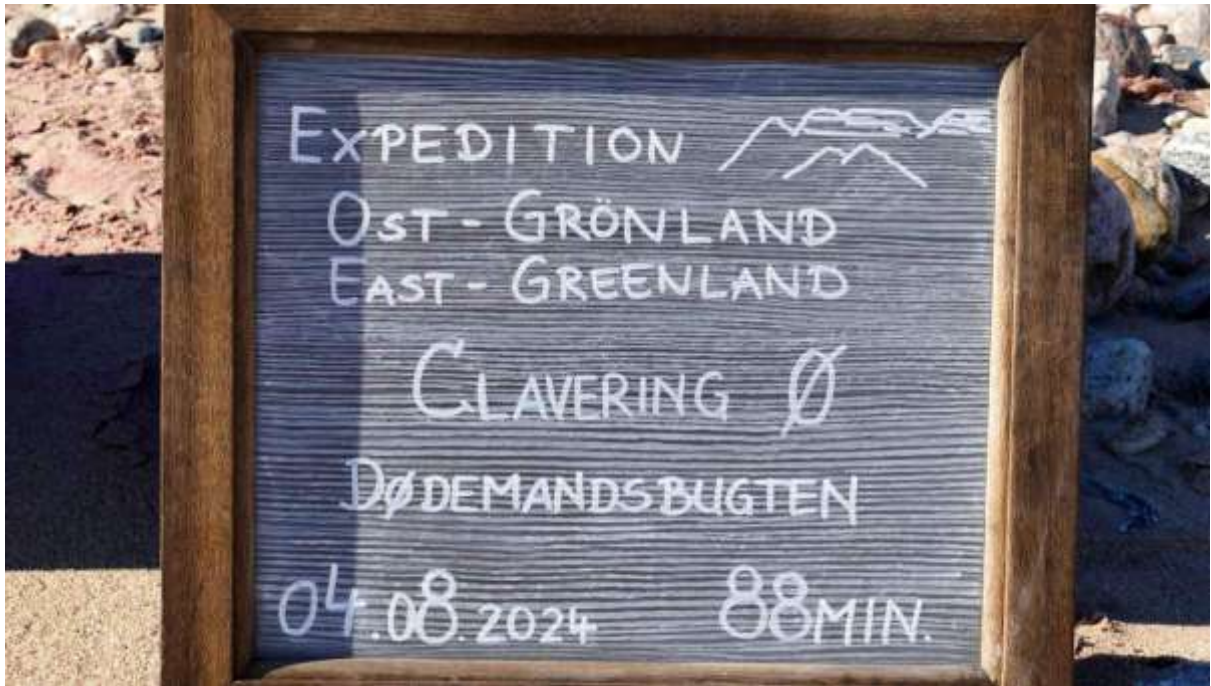 EXPEDITION
OST - GRÖNLAND
EAST - GREENLAND
CLAVERING Ø
DØDEMANDSBUGTEN
04.08.2024 88MIN.